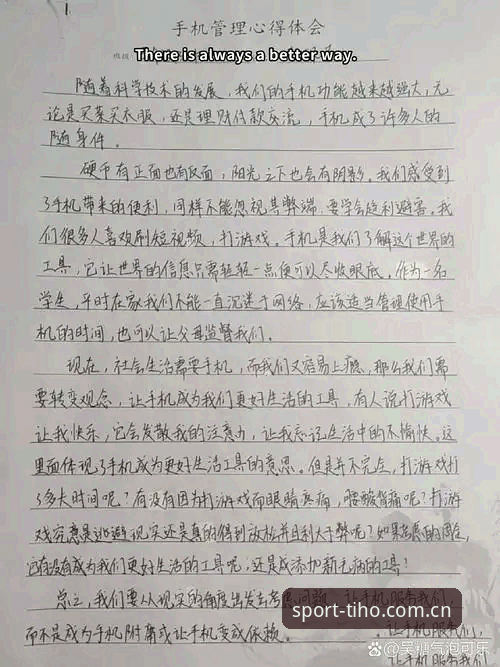 1
手机管理心得体会
There is always a better way.
班级
随着科学技术的发展，我们的手机功能越来越强大，无
论是买菜买衣服，还是理财付款交流，手机成了许多人的
随身件。
硬币有正面也有反面，阳光之下也会有阴影。我们感受到
了手机带来的便利，同样不能忽视其弊端，要学会趋利避害。我
们很多人喜欢刷短视频，打游戏。手机是我们了解这个世界的
工具，它让世界的信息只需轻轻一点便可以尽收眼底。作为一名
学生，平时在家我们不能一直沉迷于网络，应该适当管理使用手
机的时间，也可以让父母监督我们。
现在，社会生活需要手机，而我们又容易上瘾，那么我们需
要转变观念，让手机成为我们更好生活的工具，有人说打游戏
让我快乐，它会发散我的注意力，让我忘记生活中的不愉快。这
里面体现了手机成为更好生活工具的意思。但是并不完全，打游戏打
了多长时间呢？有没有因为打游戏而眼睛疼痛，腰酸背痛呢？打游
戏究竟是逃避现实还是真的得到放松并且利大于弊呢？如果考虑的周全，
它有没有成为我们更好生活的工具呢，还是成添加新毛病的工具！
总之，我们要从现实的角度出发去考虑问题，让手机服务我们
而不是成为手机附属或让手机变成依赖。 让手机服务我们，
sport-tiho.com.cn
让手机服务我们
知乎 @吴镇气泡可乐